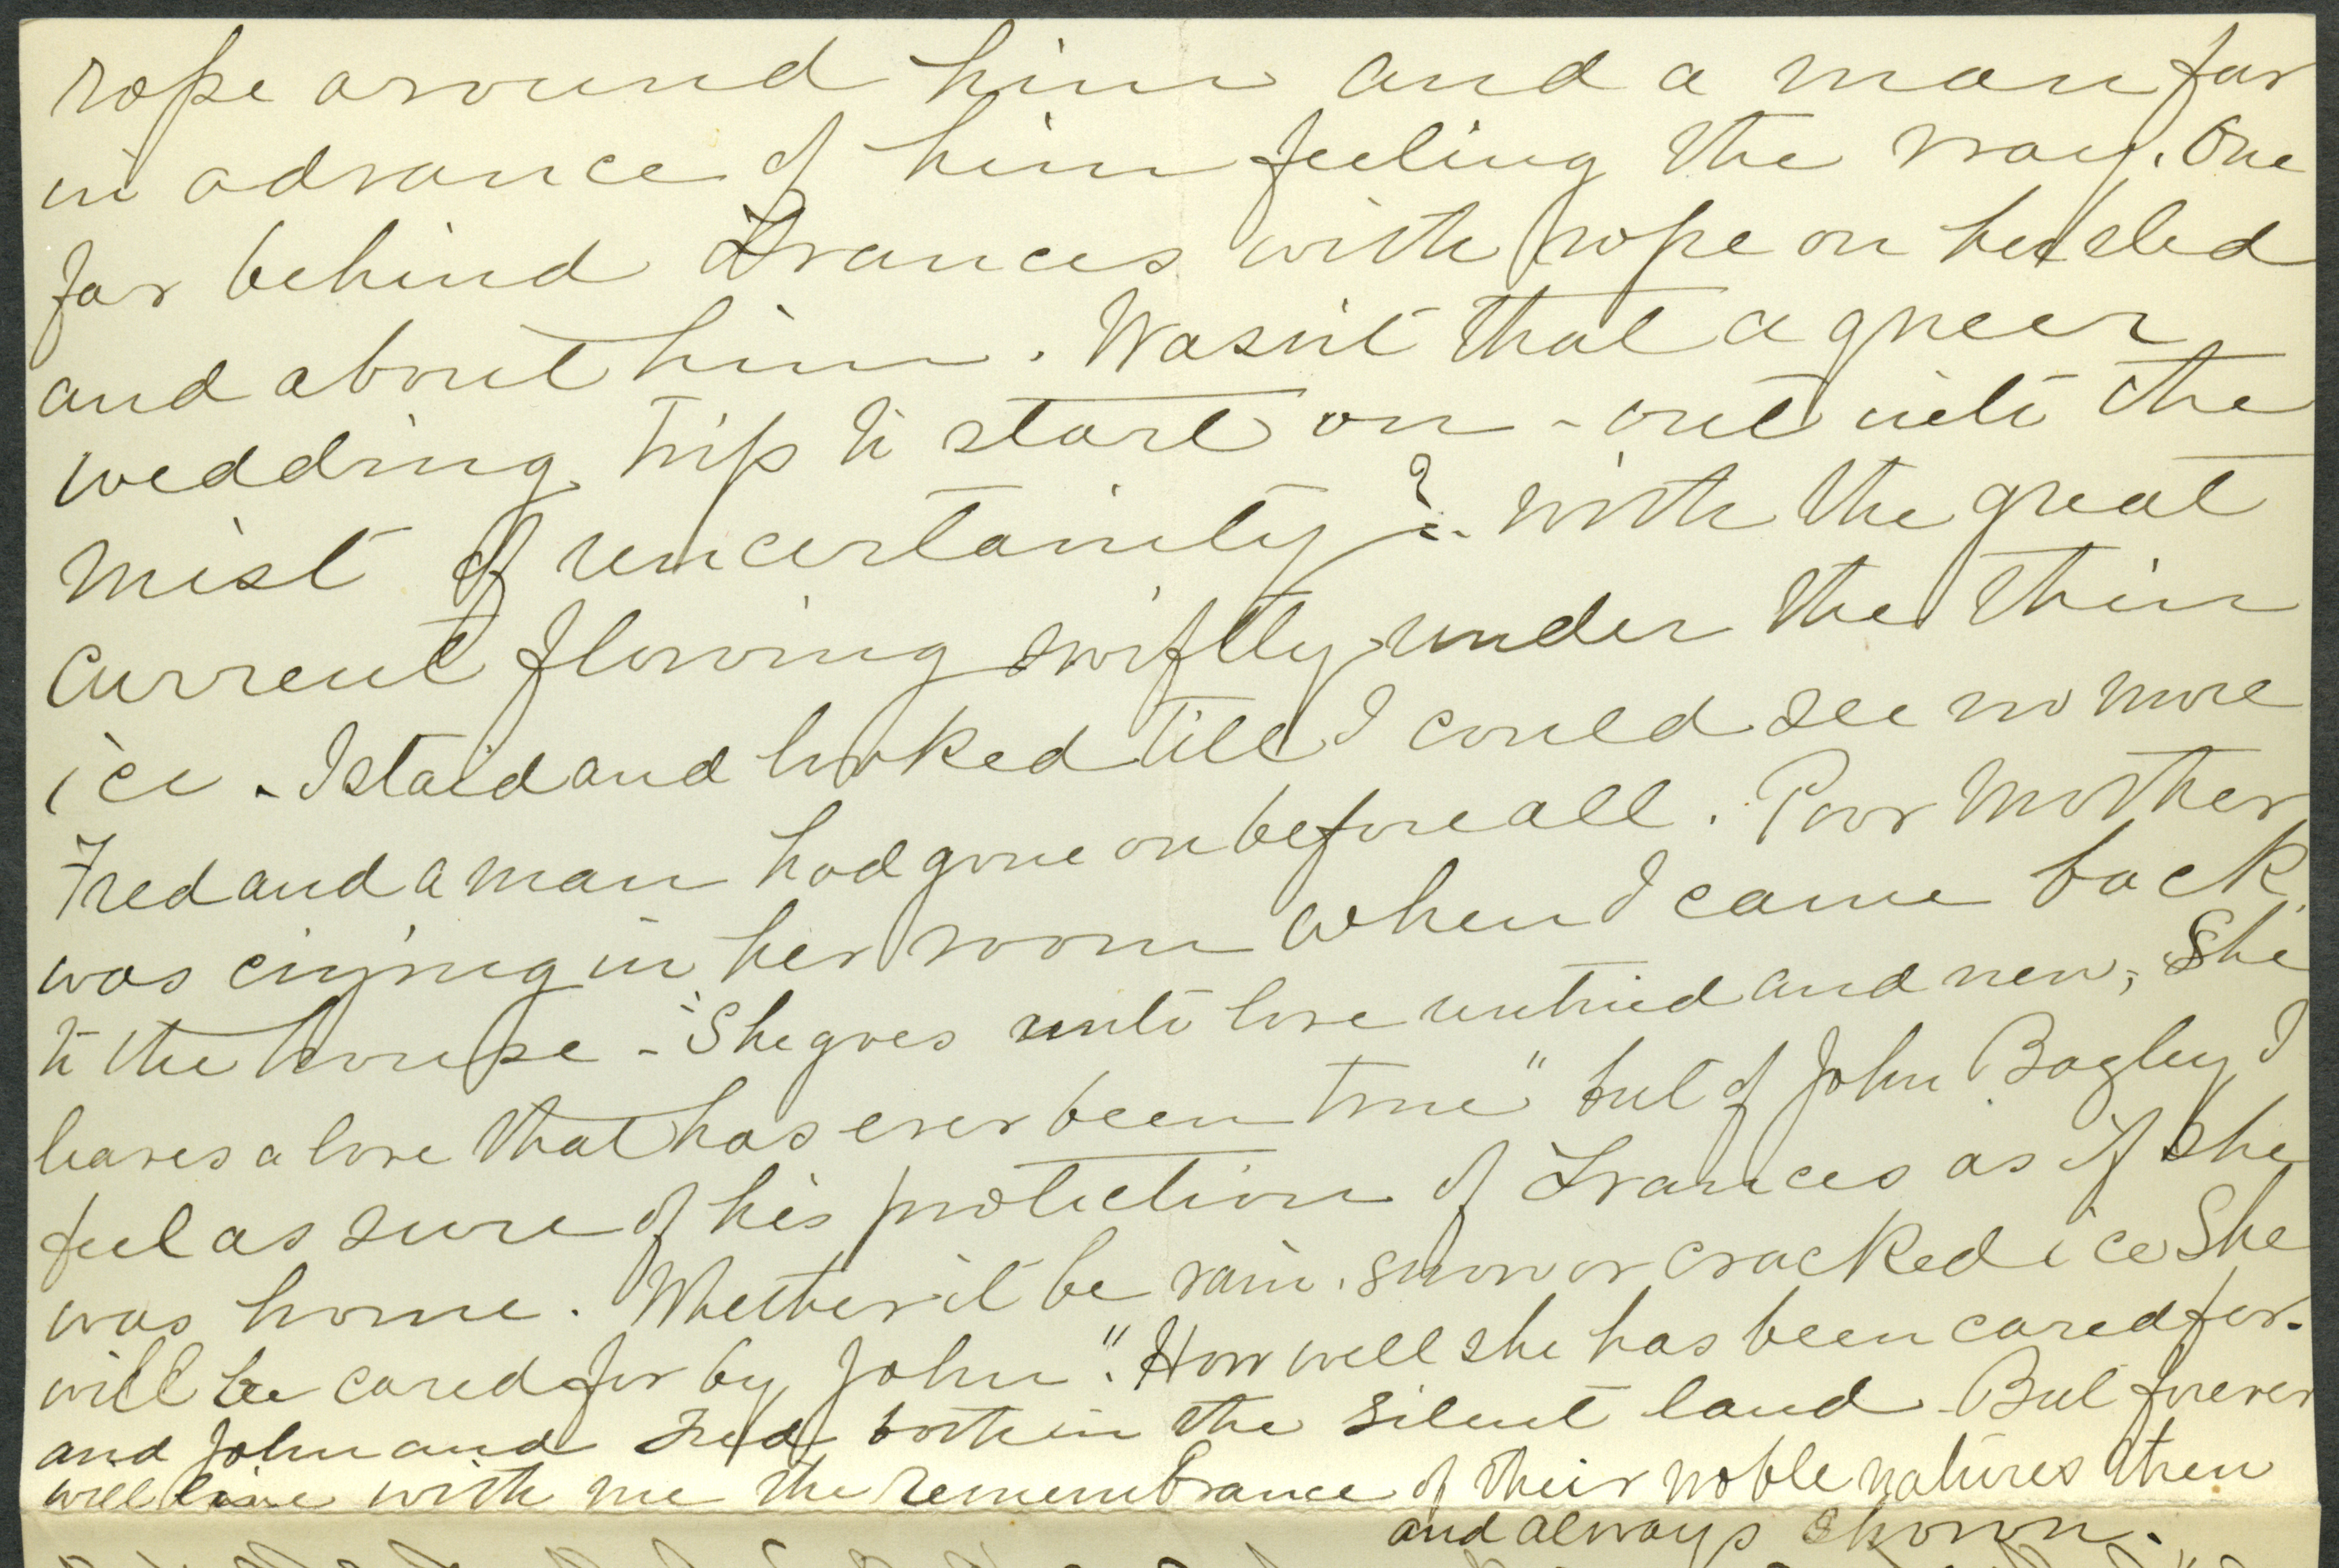 rope around him and a man far
in advance of him feeling the way. One
far behind Frances with rope on her sled
and about him. Wasn't that a queer
wedding trip to start on - out into the
mist of uncertainity? - with the great
current flowing swiftly under the thin
ice. I staid and looked till I could see no more
Fred and a man had gone on before all. Poor Mother
was crying in her room when I came back
to the house - "She goes unto love untried and new, She
leaves a love that has ever been true" but of John Bagley I
feel as sure of his protection of Frances as if she
was home. Whether it be rain, snow or cracked ice She
will be cared for by John". How well she has been cared for.
and John and Fred both in the silent land - But forever
will live with me the remembrance of their noble natures then
and always shown.